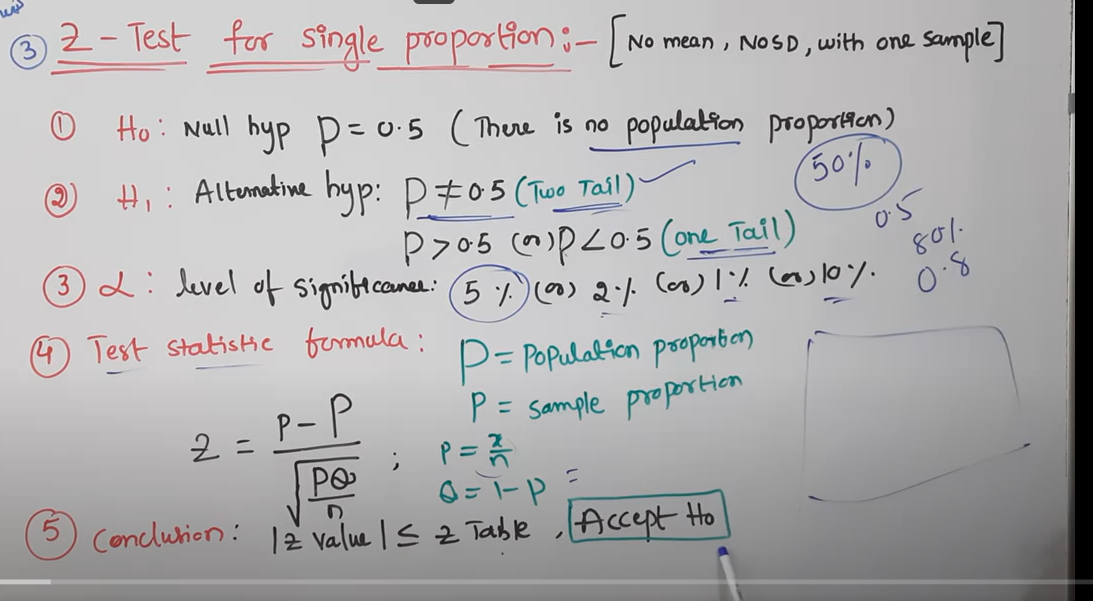 ③ Z-Test for single proportion:- [No mean, NO SD, with one sample]
① H₀: Null hyp P = 0.5 (There is no population proportion)
50%
② H₁: Alternative hyp: P ≠ 0.5 (Two Tail) ✓
0.5
P > 0.5 (or) P < 0.5 (one Tail)
80%
0.8
③ α: level of significance: 5% (or) 2% (or) 1% (or) 10%.
④ Test statistic formula: P = Population proportion
p = sample proportion
Z = (p - P) / √(PQ/n) ; p = x/n
Q = 1 - P =
⑤ Conclusion: |z value| ≤ z Table, Accept H₀